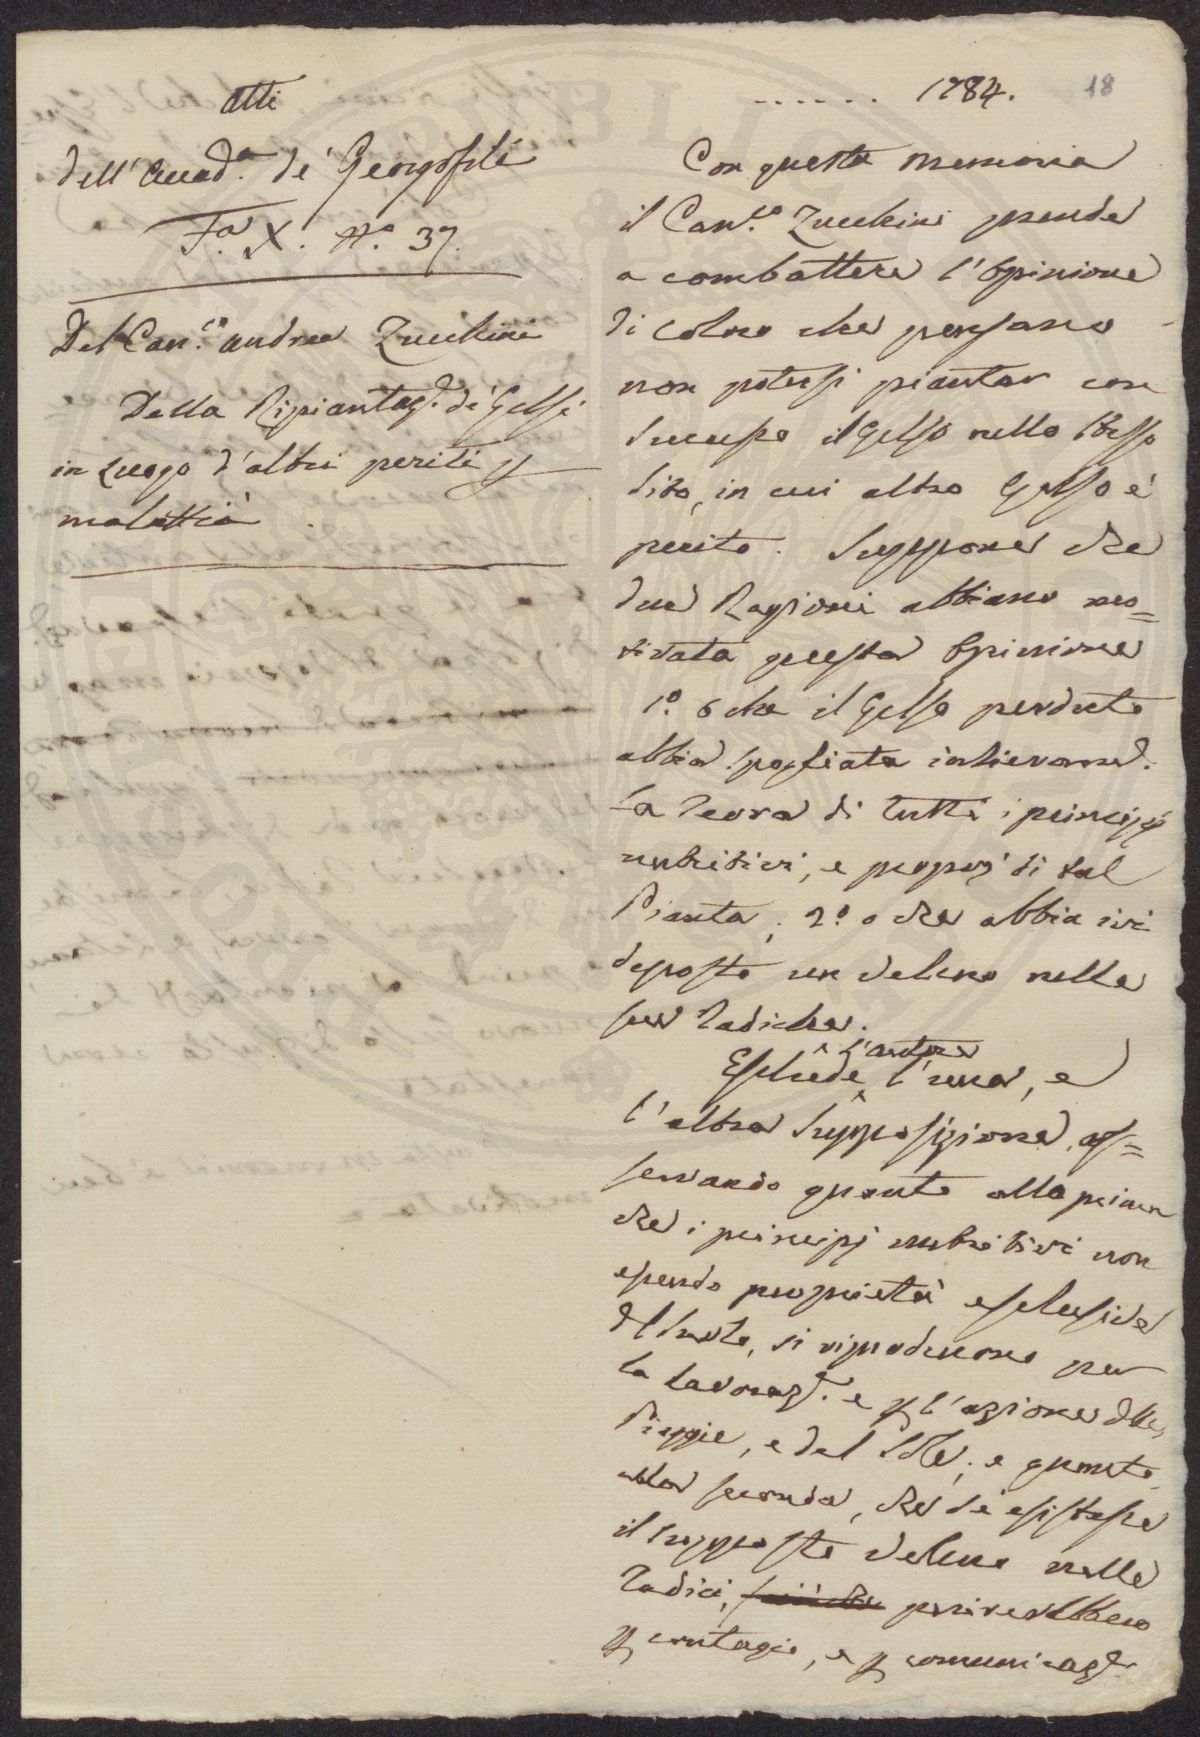 Atti
dell'Accad.a de' Georgofili
F.a X. N.o 37.
Del Can.co Andrea Zucchini
Della Ripiantaz.e de' Gelsi
in luogo d'altri periti p
malattia
...... 1784. 18
Con questa memoria
il Can.co Zucchini prende
a combattere l'opinione
di coloro che pensano
non potersi piantar con
successo il Gelso nello stesso
sito, in cui altro Gelso è
perito. Suppone che
due Ragioni abbiano mo=
tivata questa opinione
1.o o che il Gelso perduto
abbia spogliata intieram.e
la Terra di tutti i principj
nutritivi, e proprj di tal
Pianta; 2.o o che abbia ivi
deposto un veleno nelle
sue Radiche.
Esclude l'autore l'una, e
l'altra supposizione, os=
servando quanto alla prima
che i principj nutritivi non
essendo proprietà esclusiva
del suolo, si riproducono per
la lavoraz.e e p l'azione delle
Piogge, e del Sole; e quanto
alla seconda, che se esistesse
il supposto veleno nelle
Radici, perirebbero
p contagio, e p comunicaz.e